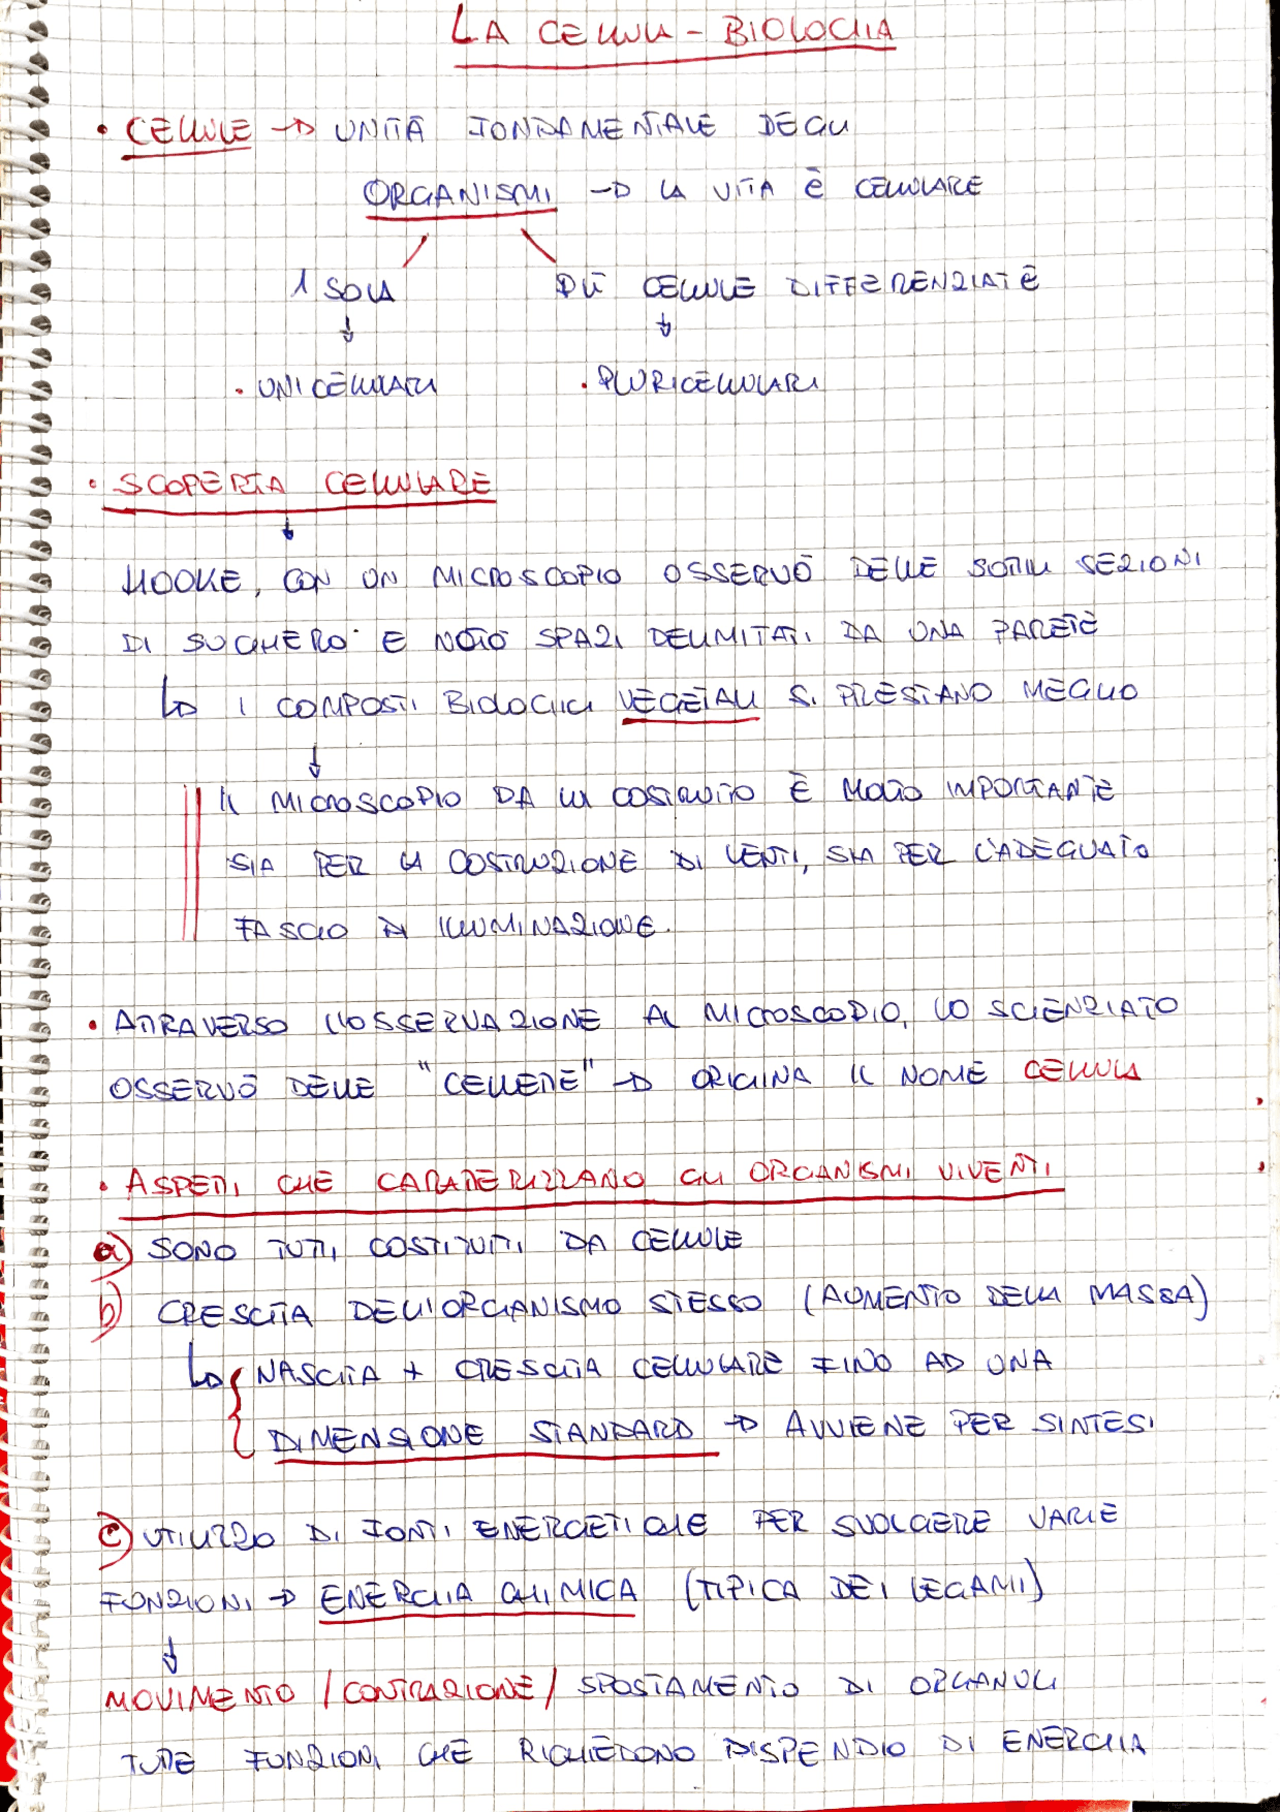 LA CELLULA - BIOLOGIA
• CELLULE → UNITÀ FONDAMENTALE DEGLI
ORGANISMI → LA VITA È CELLULARE
1 SOLA PIÙ CELLULE DIFFERENZIATE
↓ ↓
• UNICELLULARI • PLURICELLULARI
• SCOPERTA CELLULARE
↓
HOOKE, CON UN MICROSCOPIO OSSERVÒ DELLE SOTTILI SEZIONI
DI SUGHERO E NOTÒ SPAZI DELIMITATI DA UNA PARETE
↳ I COMPOSTI BIOLOGICI VEGETALI SI PRESTANO MEGLIO
↓
IL MICROSCOPIO DA LUI COSTRUITO È MOLTO IMPORTANTE
SIA PER LA COSTRUZIONE DI LENTI, SIA PER L'ADEGUATO
FASCIO DI ILLUMINAZIONE.
• ATTRAVERSO L'OSSERVAZIONE AL MICROSCOPIO, LO SCIENZIATO
OSSERVÒ DELLE "CELLETTE" → ORIGINA IL NOME CELLULA
• ASPETTI CHE CARATTERIZZANO GLI ORGANISMI VIVENTI
a) SONO TUTTI COSTITUITI DA CELLULE
b) CRESCITA DELL'ORGANISMO STESSO (AUMENTO DELLA MASSA)
↳ { NASCITA + CRESCITA CELLULARE FINO AD UNA
DIMENSIONE STANDARD → AVVIENE PER SINTESI
c) UTILIZZO DI FONTI ENERGETICHE PER SVOLGERE VARIE
FUNZIONI → ENERGIA CHIMICA (TIPICA DEI LEGAMI)
↓
MOVIMENTO / CONTRAZIONE / SPOSTAMENTO DI ORGANULI
TUTTE FUNZIONI CHE RICHIEDONO DISPENDIO DI ENERGIA